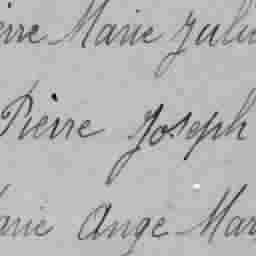 Pierre Marie Juli
Pierre Joseph
Marie Ange Mar